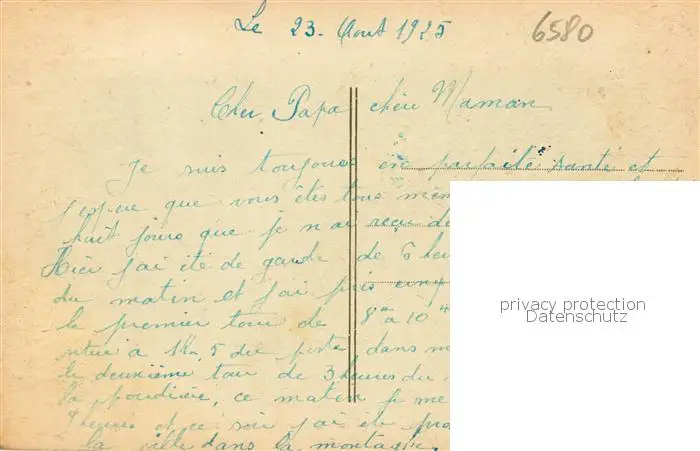 Le 23 Aout 1925
6580
Cher Papa chère Maman
Je suis toujours en parfaite santé et
j'espère que vous êtes tous mêm
huit jours que je n'ai reçu de
Hier j'ai été de garde de 5 heu
du matin et j'ai pris cinq
le premier tour de 8h à 10h
situé à 1km,5 du poste dans m
le deuxième tour de 3 heures du
la poudrière, ce matin je me
heures et ce soir j'ai été pro
la ville dans la montagne
privacy protection
Datenschutz